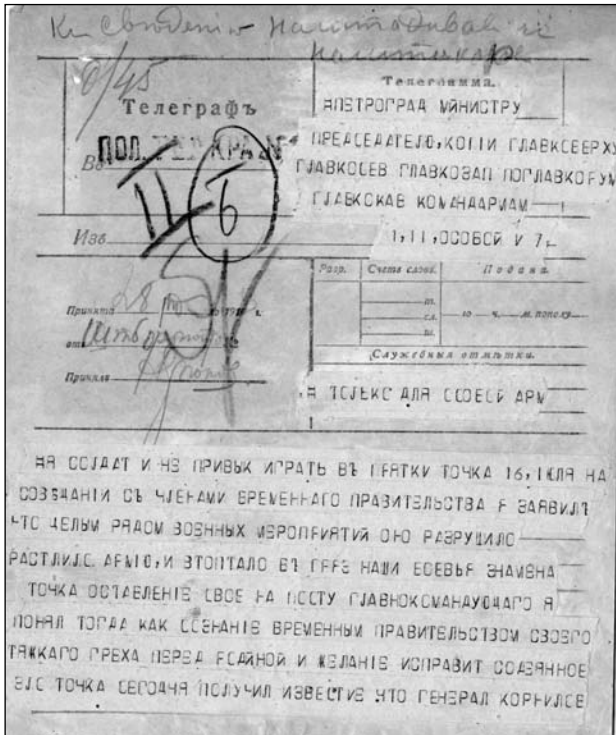 Къ свѣдѣнію
6/45
Телеграфъ
ПОЛ.
Въ
11 6
Изъ
Принята 28
отъ
Принялъ
Телеграмма.
ЯПЕТРОГРАД МИНИСТРУ
ПРЕДСЕДАТЕЛЮ,КОПИ ГЛАВКСВЕРХУ
ГЛАВКОСЕВ ГЛАВКОЗАП ПОГЛАВКОРУМ
ГЛАВКОКАВ КОМАНДАРМАМ
1,11,ОСОБОЙ И 7,
Разр. Счетъ словъ. Подана.
ч. м. пополу
Служебныя отмѣтки.
ТОЛЬКО ДЛЯ ОСОБОЙ АРМ
ЯЯ СОЛДАТ И НЕ ПРИВЫК ИГРАТЬ ВЪ ПРЯТКИ ТОЧКА 16, ІЮЛЯ НА
СОВѢЩАНІИ СЪ ЧЛЕНАМИ ВРЕМЕННАГО ПРАВИТЕЛЬСТВА Я ЗАЯВИЛЪ
ЧТО ЦЕЛЫМ РЯДОМ ВОЕННЫХ МЕРОПРИЯТИЙ ОНО РАЗРУШИЛО
РАСТЛИЛО АРМІЮ,И ВТОПТАЛО ВЪ ГРЯЗ НАШИ БОЕВЫЯ ЗНАМЕНА
ТОЧКА ОСТАВЛЕНІЕ СВОЕ НА ПОСТУ ГЛАВНОКОМАНДУЮЩАГО Я
ПОНЯЛ ТОГДА КАК СОЗНАНІЕ ВРЕМЕННЫМ ПРАВИТЕЛЬСТВОМ СВОЕГО
ТЯЖКАГО ГРЕХА ПЕРЕД РОДИНОЙ И ЖЕЛАНІЕ ИСПРАВИТ СОДЕЯННОЕ
ЗЛО ТОЧКА СЕГОДНЯ ПОЛУЧИЛ ИЗВЕСТИЕ ЧТО ГЕНЕРАЛ КОРНИЛОВ